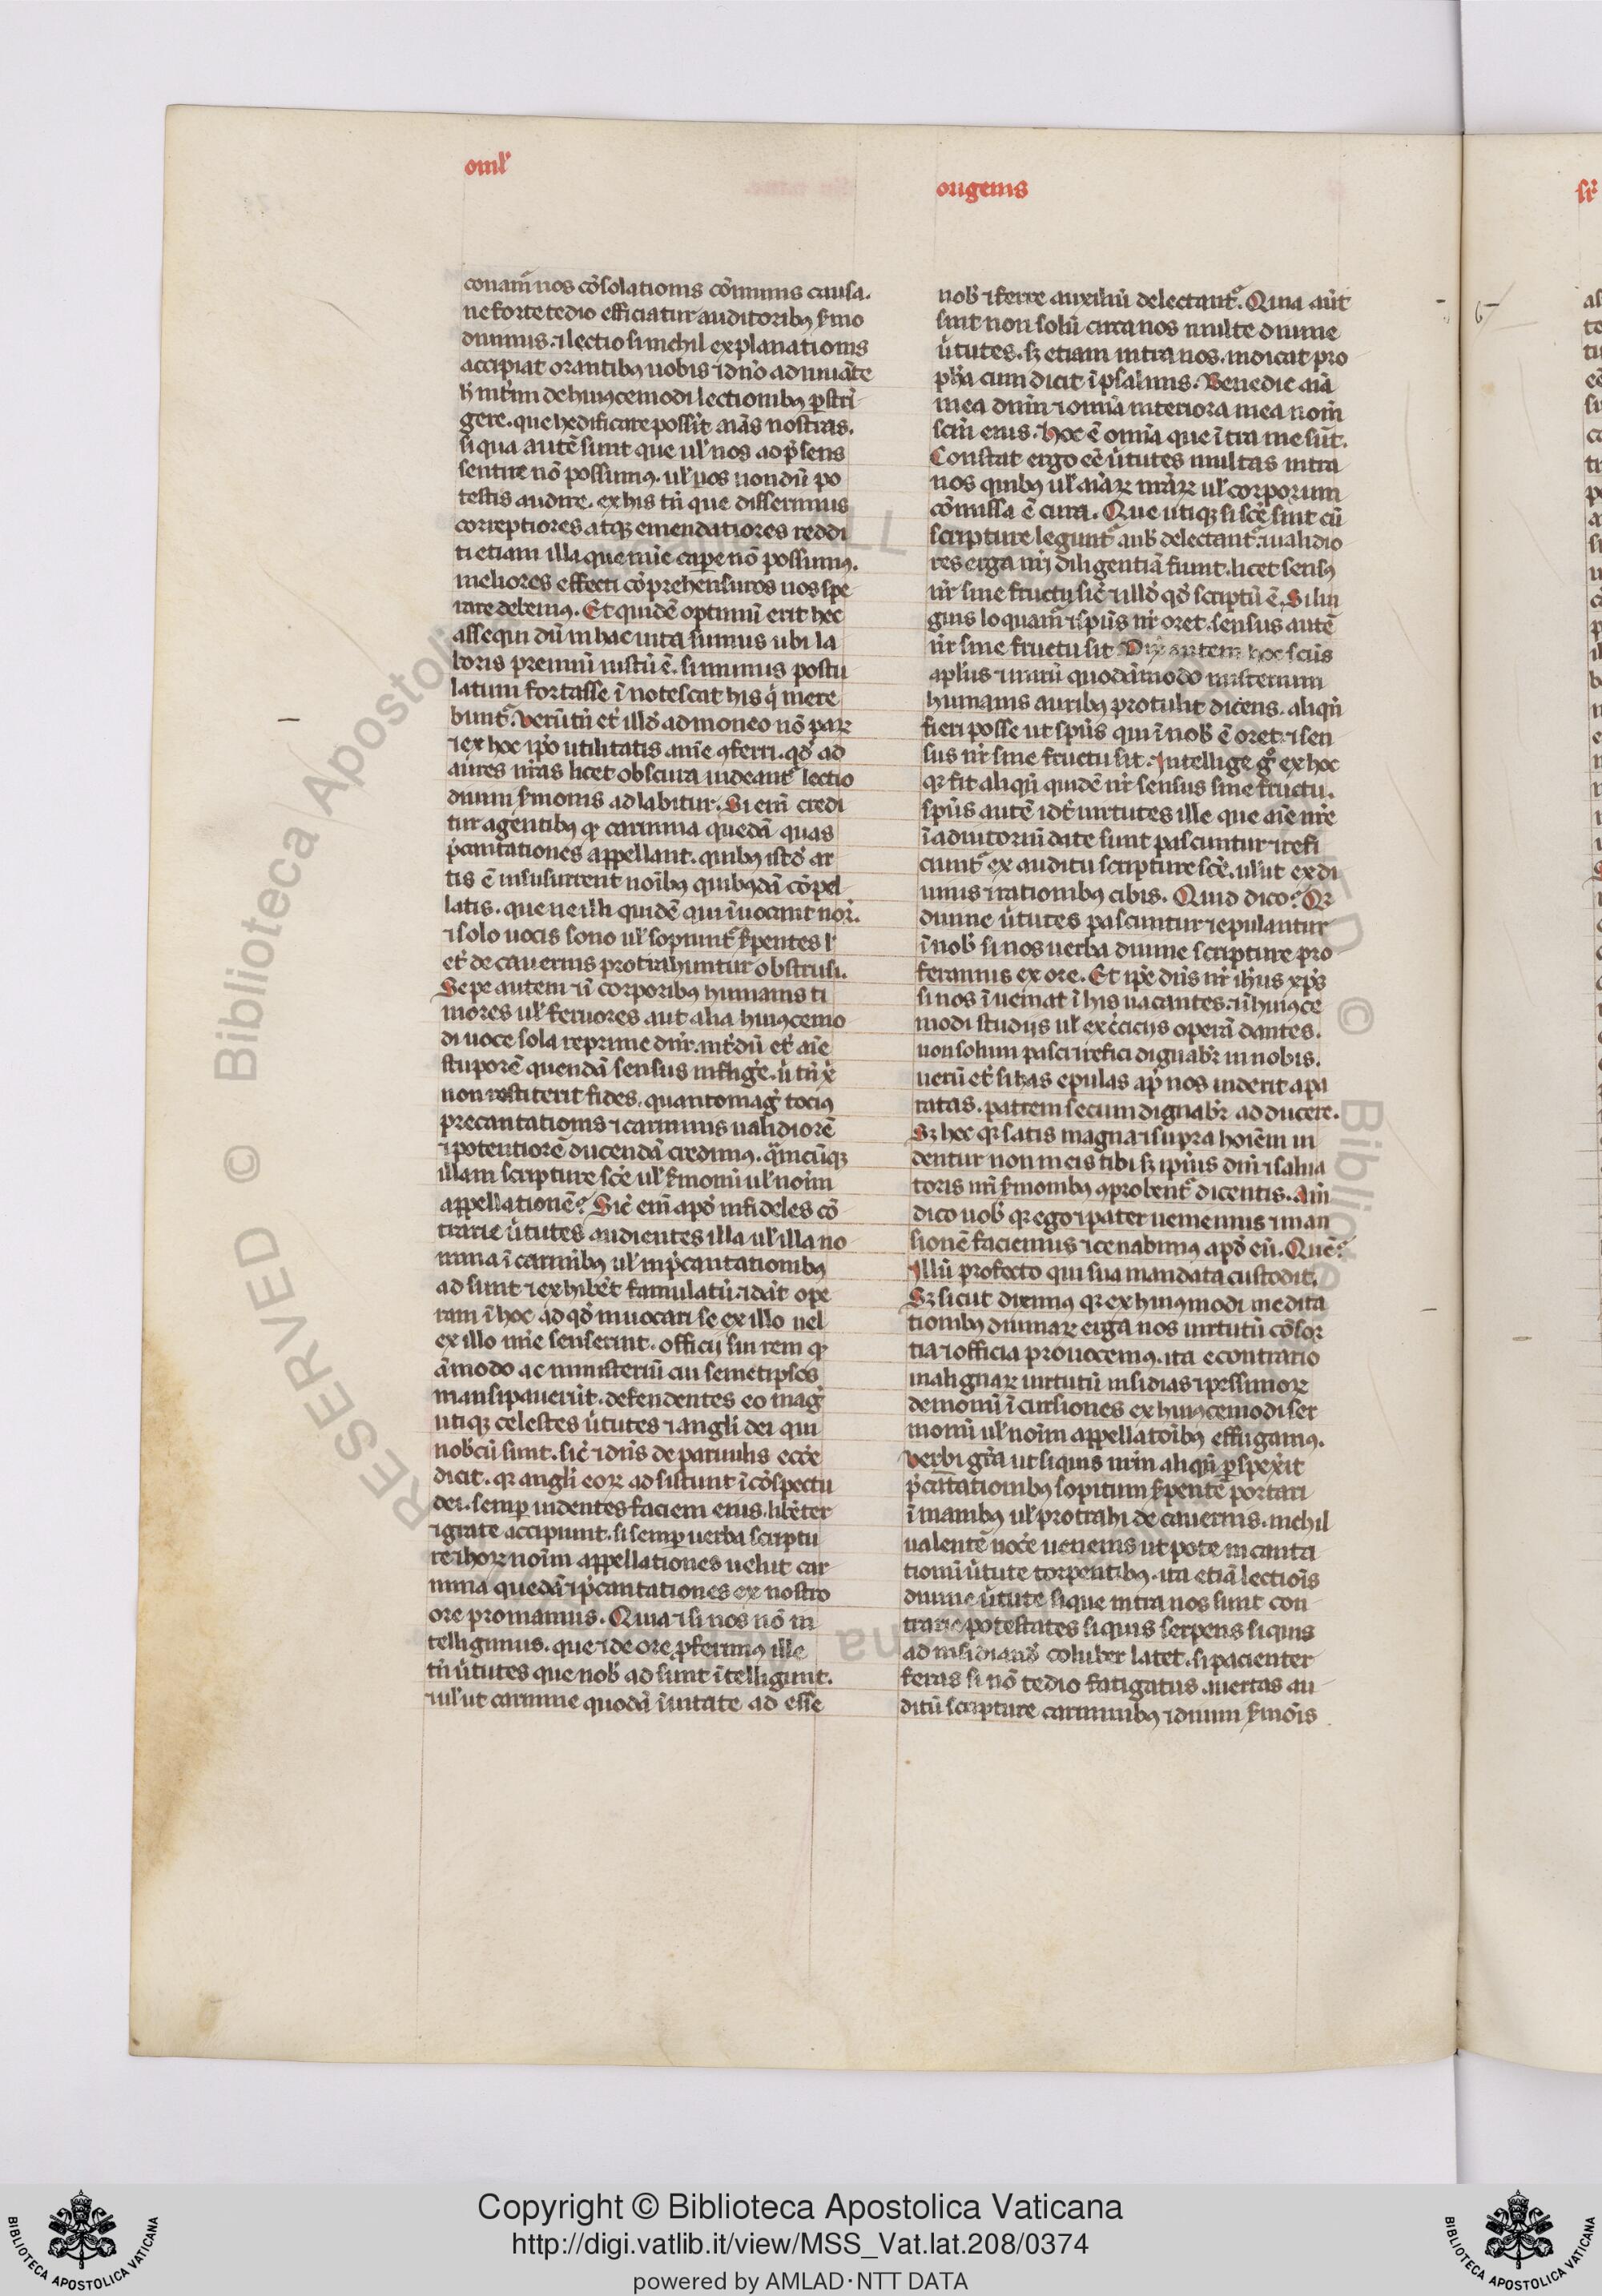 oml'
origenis
conam̄ nos cōsolationis cōmunis causa.
ne forte tedio efficiatur auditoribꝯ s̓mo
diuinus. ⁊ lectio si nichil explanationis
accipiat orantibꝯ uobis ⁊ dn̄o adiuuāte
gere. que hedificare possīt aīas nostras.
si qua autē sunt que ul' nos ad p̄sens
sentire nō possumꝯ. ul' uos nondū po
testis audire. ex his tn̄ que disserimus
correptiores atqꝫ emendatiores reddi
ti etiam illa que nūc capere nō possumꝯ.
meliores effecti cōprehensuros nos spe
rare debemꝯ. Et quidē optimū erit hec
assequi dū in hac uita sumus ubi la
boris premiū iustū ē. sīn minus postu
latum fortasse īnotescat his q̓ mere
bunt̄. Verūtn̄ et̓ illd̓ admoneo nō paꝝ
⁊ ex hoc ip̄o utilitatis aīe ꝯferri. qd̓ ad
aures nr̄as licet obscura uideant̄ lectio
diuini s̓monis adlabitur. Si eni credi
tur a gentibꝯ qꝛ carmina quedā quas
p̄cantationes appellant. quibꝯ istd̓ ar
tis ē insusurrent noībꝯ quibꝯdā cōpel
latis. que ne illi quidē qui īuocant nor̄.
⁊ solo uocis sono ul' sopiunt̄ s̓pentes l'
et̓ de cauernis protrahuntur obstrusi.
Sepe autem ⁊ ī corporibꝯ humanis ti
mores ul' feruores aut alia huiꝯcemo
di uoce sola reprime dn̄r. int̓dū et̓ aīe
stuporē quendā sensus inflige̓. ubi xp̄i
non restiterit fides. quantomag̓ tociꝯ
precantationis ⁊ carminis ualidiorē
⁊ potentiorē ducendā credimꝯ. q̄mcūqꝫ
illam scripture sc̄e ul' s̓monū ul' noīm
appellationē? Sic̓ eni apd̓ infideles cō
trarie ū̓tutes audientes illa ul' illa no
mina ī carmībꝯ ul' in p̄cantationibꝯ
adsunt ⁊ exhibēt famulatū. ⁊ dāt ope
ram ī hoc ad qd̓ inuocari se ex illo uel
ex illo noīe senserint. officij sui rem qꝛ
āmodo ac ministeriū cui semetipsos
mansipauerūt. defendentes eo mag̓
utiqꝫ celestes ū̓tutes ⁊ angli dei qui
nob̓cū sunt. sic̓ ⁊ dn̄s de paruulis ecc̄e
dicit. qꝛ angli eoꝝ adsistunt ī cōspectu
dei. semp̱ uidentes faciem eius. libēter
⁊ grate accipiunt. si semp̱ uerba scriptu
re ⁊ hoꝝ noīm appellationes uelut car
mina quedā ⁊ p̄cantationes ex nostro
ore promamus. Quia ⁊ si nos nō in
telligimus. que ⁊ de ore ꝓferimꝯ ille
tn̄ ū̓tutes que nob̓ adsunt ītelligunt.
⁊ ul'ut carmine quodā īuitate adesse
nob̓ ⁊ ferre auxiliū delectant̄. Quia aūt
sint non solū circa nos multe diuine
ū̓tutes. sꝫ etiam intra nos. indicat pro
ph̄a cum dicit ī psalmis. Benedic aīa
mea dn̄m ⁊ omīa interiora mea nom̄
scm̄ eius. hoc ē omīa que ītra me sūt.
Constat ergo eē ū̓tutes multas intra
nos quibꝯ ul' aīaꝝ nr̄aꝝ ul' corporum
cōmissa ē cura. Que utiqꝫ si sc̄e sint cū
scripture legunt̄ a nob̓ delectant̄. ⁊ ualidio
res erga nr̄i diligentiā fiunt. licet sensꝯ
nr̄ sine fructu sit. sic̓ ⁊ illd̓ qd̓ scriptū ē. Si lin
guis loquam̄ ⁊ spūs nr̄ oret. sensus autē
nr̄ sine fructu sit. Dix̓ autem hoc scūs
apl̓us ⁊ mirū quodāmodo misterium
humanis auribꝯ protulit dicens. aliqn̄
fieri posse ut spūs qui ī nob̓ ē oret. ⁊ sen
sus nr̄ sine fructu sit. Intellige g̊ ex hoc
qꝛ fit aliqn̄ quidē nr̄ sensus sine fructu.
spūs autē idē̓ uirtutes ille que aīe nr̄e
ī adiutoriū date sunt pascuntur ⁊ refi
ciunt̄ ex auditu scripture sc̄e. ul'ut ex di
uinis ⁊ rationibꝯ cibis. Quid dico? Qꝛ
diuine ū̓tutes pascuntur ⁊ epulantur
ī nob̓ si nos uerba diuine scripture pro
feramus ex ore. Et ip̄e dn̄s nr̄ ih̄us xp̄s
si nos īueniat ī his uacantes. ⁊ ī huiꝯce
modi studijs ul' exc̓icijs operā dantes.
non solum pasci ⁊ refici dignabr̄ in nobis.
uerū et̓ si has epulas ap̓ nos uiderit appa
ratas. patrem secum dignabr̄ adducere.
Sꝫ hec qꝛ satis magna ⁊ supra hoīem ui
dentur non meis tibi sꝫ ip̄ius dn̄i ⁊ salua
toris nr̄i s̓monibꝯ ꝯprobent̄ dicentis. Am̄
dico uob̓ qꝛ ego ⁊ pater ueniemus ⁊ man
sionē faciemus ⁊ cenabimꝯ apd̓ eū. Quē?
Illū profecto qui sua mandata custodit.
Sꝫ sicut diximꝯ qꝛ ex huiꝯmodi medita
tionibꝯ diuinaꝝ erga nos uirtutū cōsor
tia ⁊ officia prouocemꝯ. ita econtrario
malignaꝝ uirtutū insidias ⁊ pessimoꝝ
demonū īcursiones ex huiꝯcemodi ser
monū ul' noīm appellatoībꝯ effugamꝯ.
Verbi gr̄a ut si quis ur̄m aliqn̄ p̱spexit
p̄cantationibꝯ sopitum s̓pentē portari
ī manibꝯ ul' protrahi de cauernis. nichil
ualentē noce̓ uenenis ut pote incanta
tionū ū̓tute torpentibꝯ. ita etiā lectiōis
diuine ū̓tute si que intra nos sunt con
trarie potestates si quis serpens si quis
ad insidiand̓ coluber latet. si pacienter
feras si nō tedio fatigatus auertas au
ditū scripture carminibꝯ ⁊ diuini s̓mōis
Copyright © Biblioteca Apostolica Vaticana
http://digi.vatlib.it/view/MSS_Vat.lat.208/0374
powered by AMLAD·NTT DATA
BIBLIOTECA APOSTOLICA VATICANA
BIBLIOTECA APOSTOLICA VATICANA